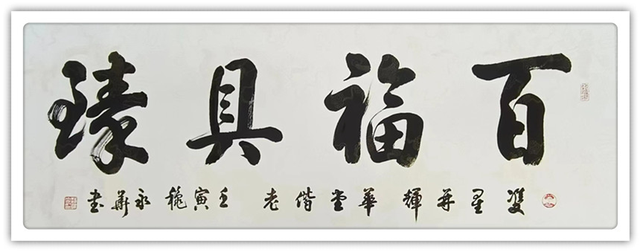 百福具臻
雙星并輝華堂偕老壬寅穐永書